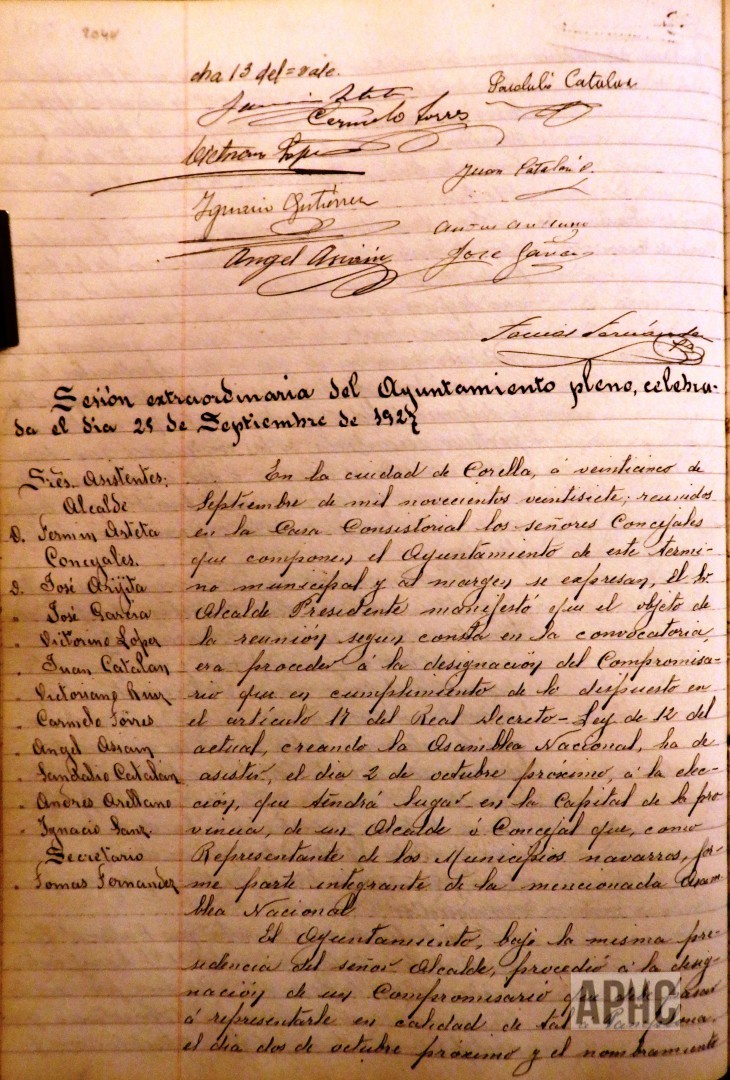 dia 13 del = vale.
Sandalio Catalan
Carmelo Torres
Victorino Lopez
Juan Catalán
Ignacio Gutiérrez
Angel Asiain
Jose Garcia
Tomás Fernández
Sesión extraordinaria del Ayuntamiento pleno, celebra-
da el dia 25 de Septiembre de 1927
Sres. Asistentes:
Alcalde
D. Fermin Arteta
Concejales.
D. José Arijita
" José Garcia
" Victorino Lopez
" Juan Catalan
Victoriano Ruiz
" Carmelo Torres
" Angel Asiain
" Sandalio Catalán
" Andres Arellano
" Ignacio Sanz
Secretario
" Tomas Fernandez
En la ciudad de Corella, á veinticinco de
Septiembre de mil novecientos veintisiete; reunidos
en la Casa Consistorial los señores Concejales
que componen el Ayuntamiento de este térmi-
no municipal y al margen se expresan, El Sr.
Alcalde Presidente manifestó que el objeto de
la reunión, segun consta en la convocatoria,
era proceder á la designación del Compromisa-
rio que en cumplimiento de lo dispuesto en
el artículo 17 del Real Decreto-Ley de 12 del
actual, creando la Asamblea Nacional, ha de
asistir, el dia 2 de octubre próximo, á la elec-
ción, que tendrá lugar en la Capital de la pro-
vincia, de un Alcalde ó Concejal que, como
Representante de los Municipios navarros, for-
me parte integrante de la mencionada Asam-
blea Nacional
El Ayuntamiento, bajo la misma pre-
sidencia del señor Alcalde, procedió á la desig-
nación de un Compromisario que
á representarle en calidad de tal
el dia dos de octubre próximo y el nombramiento
APHC